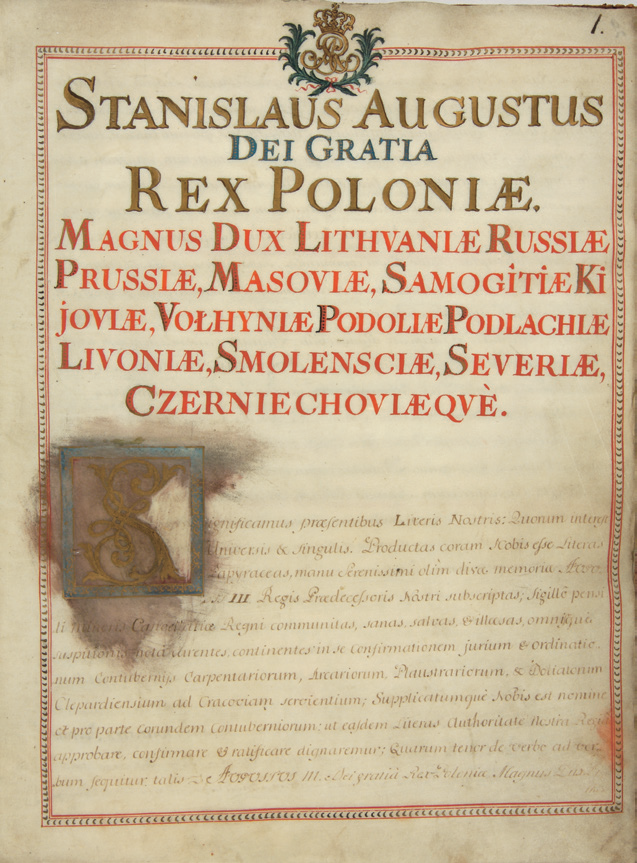 1.
STANISLAUS AUGUSTUS
DEI GRATIA
REX POLONIÆ.
MAGNUS DUX LITHVANIÆ RUSSIÆ
PRUSSIÆ, MASOVIÆ, SAMOGITIÆ KI
JOVIÆ, VOŁHYNIÆ PODOLIÆ PODLACHIÆ
LIVONIÆ, SMOLENSCIÆ, SEVERIÆ,
CZERNIECHOVIÆQVÈ.
S
ignificamus præsentibus Literis Nostris: Quorum interest
Universis & singulis. Productas coram Nobis esse Literas
papyraceas, manu Serenissimi olim divæ memoriæ
III Regis Prædecessoris Nostri subscriptas, Sigillô pensi
li Cancellariæ Regni communitas, sanas, salvas, & illæsas, omniquè
suspitionis nota carentes, continentes in se Confirmationem jurium & ordinatio
num Contubernijs Carpentariorum, Arcariorum, Plaustrariorum, & Doliatorum
Clepardiensium ad Cracoviam servientium; Supplicatumquè Nobis est nomine
et pro parte eorundem Contuberniorum; ut easdem Literas Authoritate Nostra
approbare, confirmare & ratificare dignaremur; Quarum tenor de verbo ad ver
bum sequitur talis III. Dei gratiâ Rex Poloniæ Magnus Dux